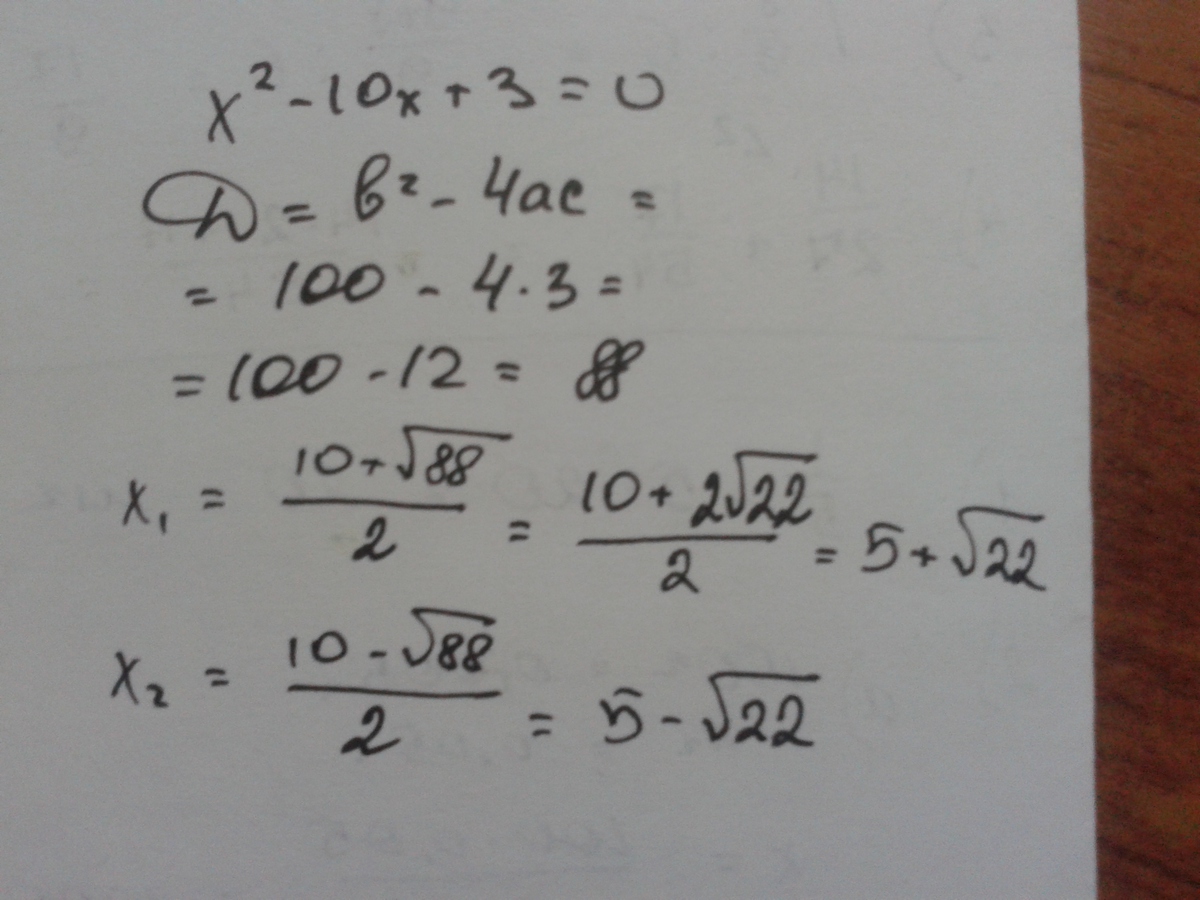 x² - 10x + 3 = 0
D = b² - 4ac =
= 100 - 4·3 =
= 100 - 12 = 88
x₁ = (10+√88)/2 = (10+2√22)/2 = 5+√22
x₂ = (10-√88)/2 = 5-√22